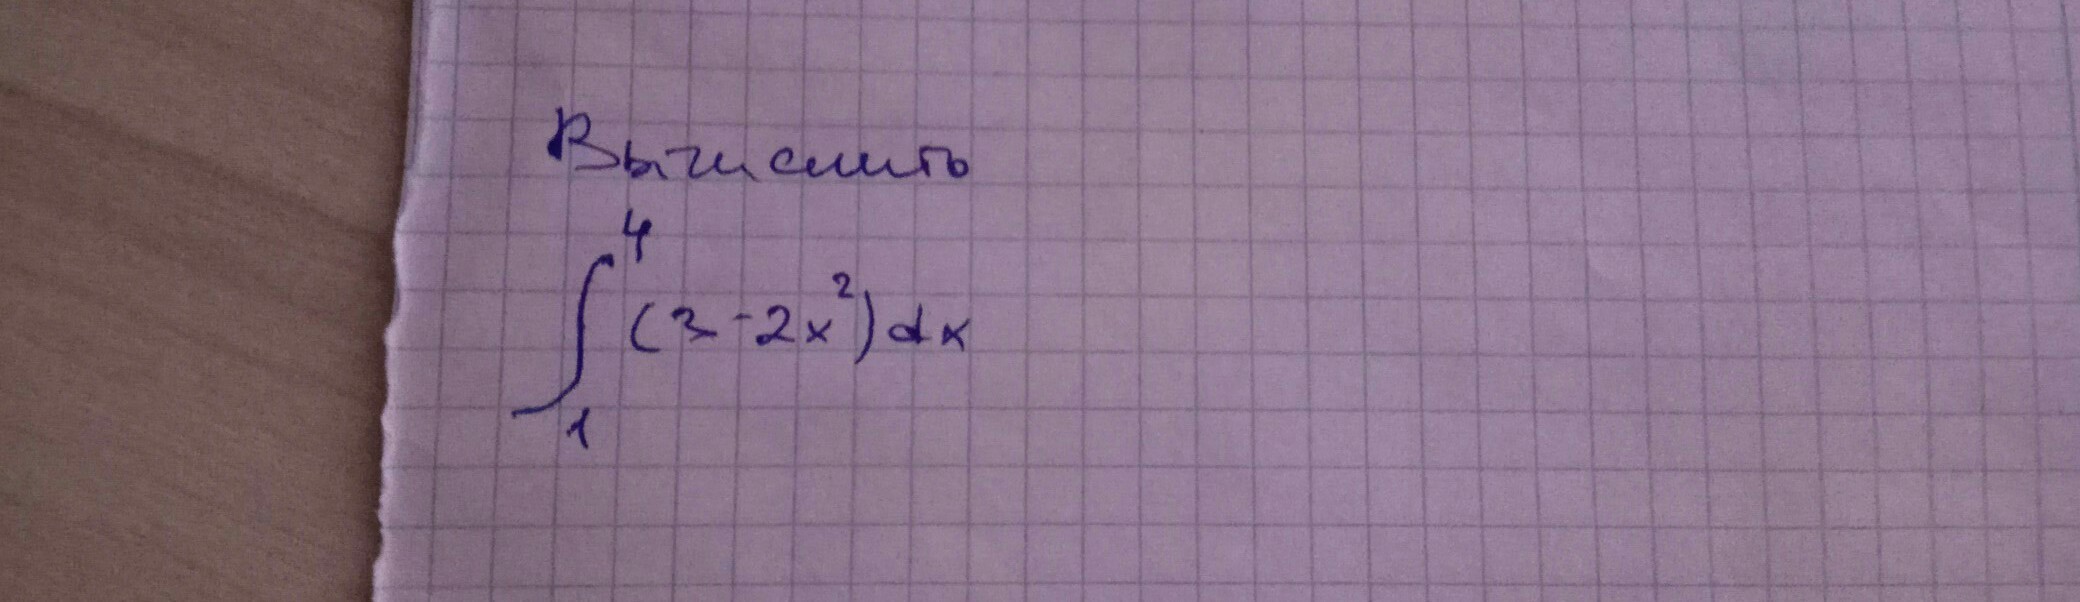 Вычислить
∫₁⁴ (3-2x²)dx